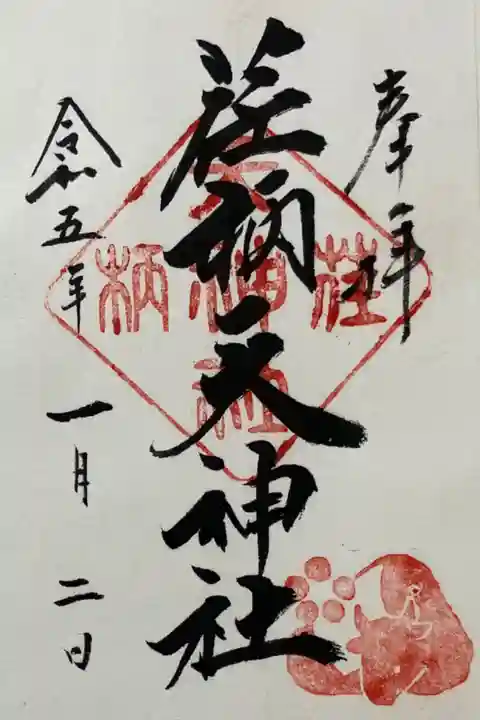 奉拝
荏柄天神社
令和五年一月二日
荏
柄
天
神
社